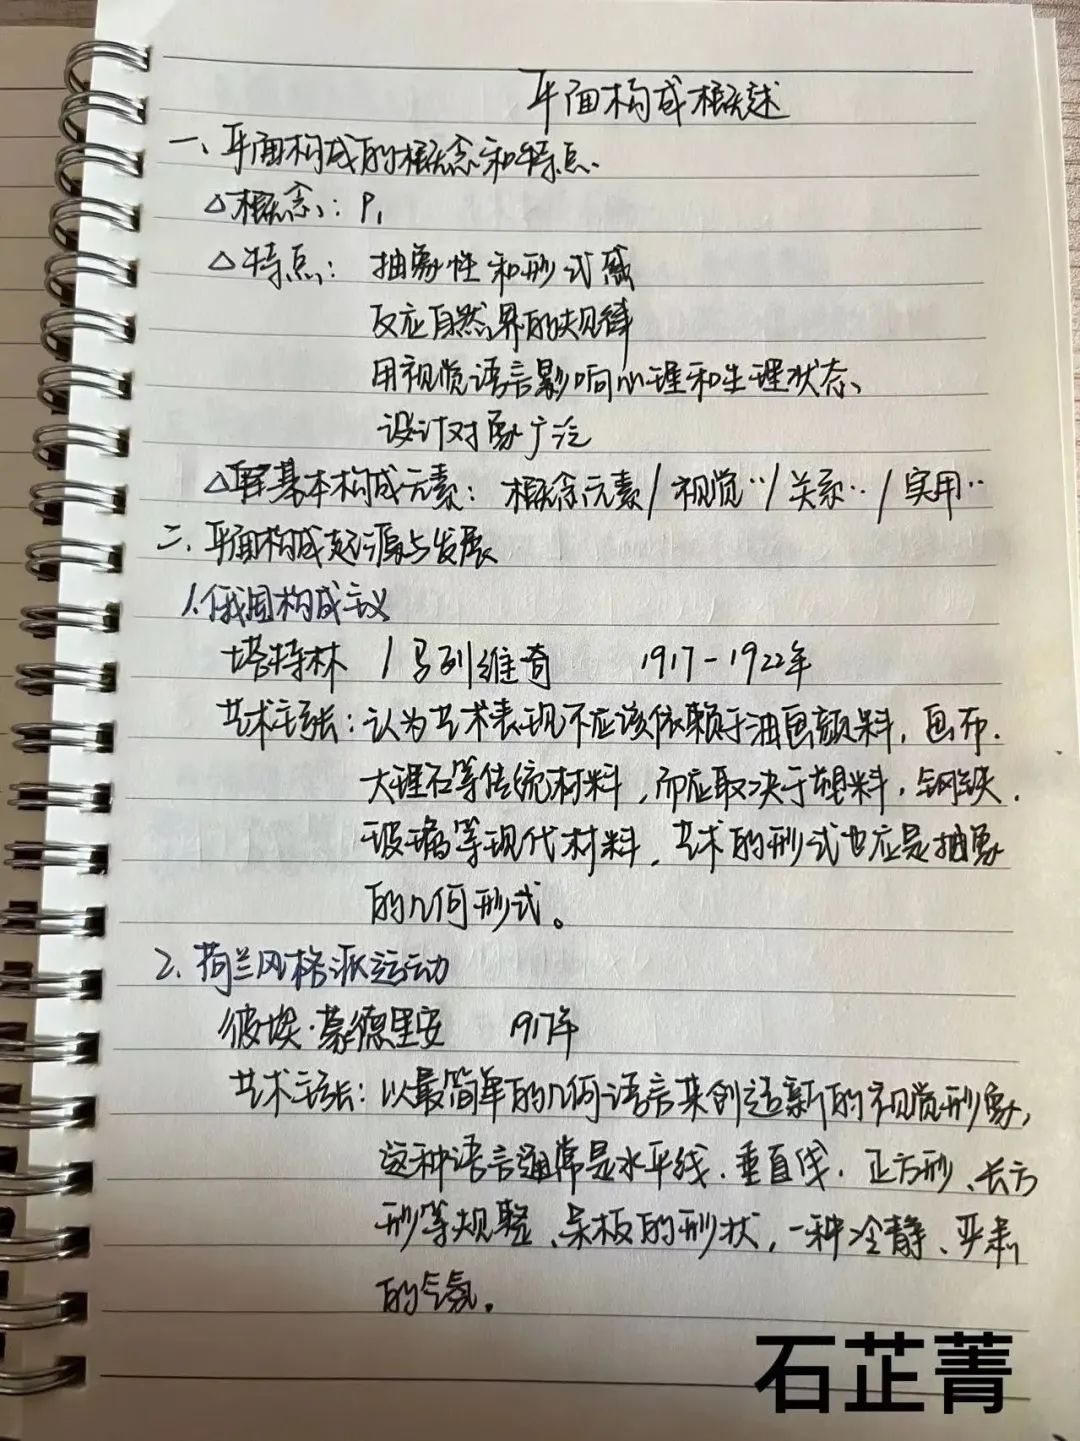 平面构成概述
一、平面构成的概念和特点.
△概念: P1
△特点: 抽象性和形式感
反应自然界的规律
用视觉语言影响心理和生理状态、
设计对象广泛
△基本构成元素: 概念元素/视觉··/关系··/实用··
二、平面构成起源与发展
1.俄国构成主义
塔特林 / 马列维奇 1917-1922年
艺术主张: 认为艺术表现不应该依赖于油画颜料, 画布.
大理石等传统材料, 而应取决于塑料, 钢铁.
玻璃等现代材料, 艺术的形式也应是抽象
的几何形式。
2. 荷兰风格派运动
彼埃·蒙德里安 1917年
艺术主张: 以最简单的几何语言来创造新的视觉形象,
这种语言通常是水平线、垂直线. 正方形、长方
形等规整、呆板的形状, 一种冷静、严肃
的气氛.
石芷菁